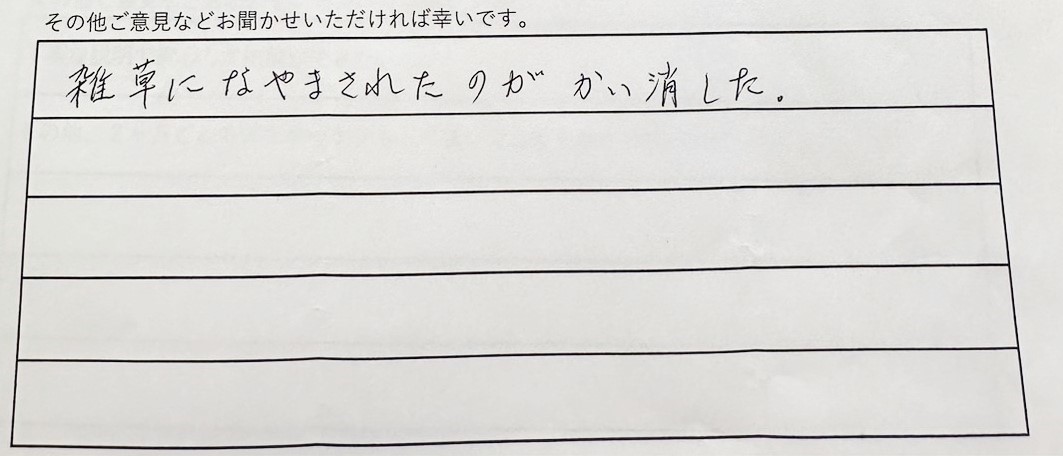 その他ご意見などお聞かせいただければ幸いです。
雑草になやまされたのが かい消した。